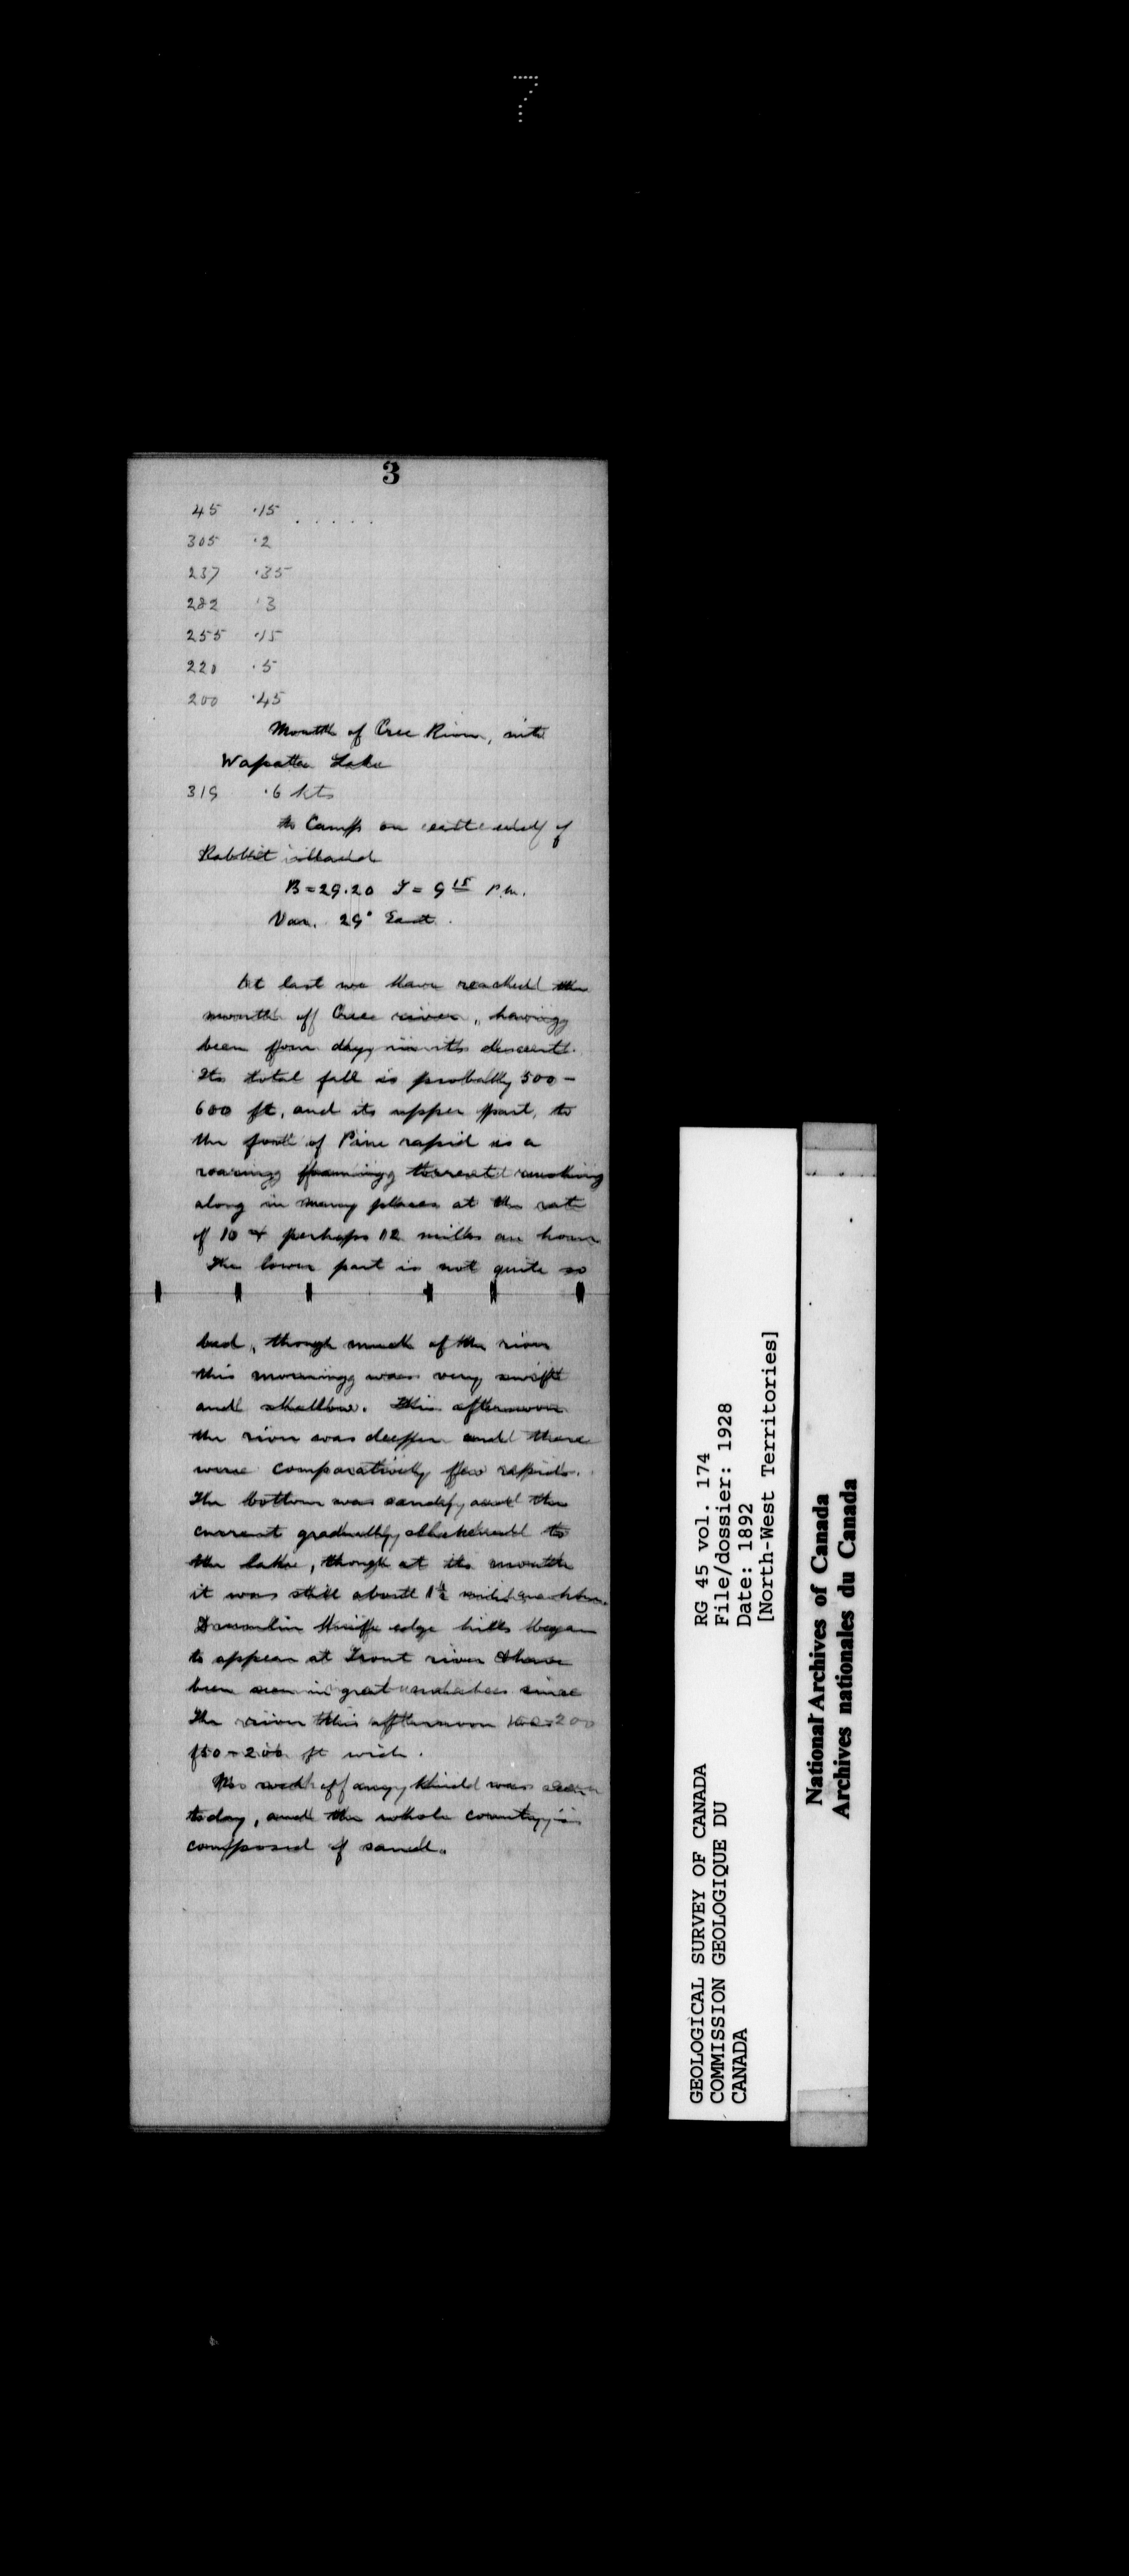 7
3
45 .15 . . . . .
305 .2
237 .35
282 .3
255 .15
220 .5
200 .45
Mouth of Cree River, into
Wapatta Lake
319 .6 kts
to Camp on east end of
Rabbit island
B = 29.20 T = 9 15 P.M.
Var. 29° East.
At last we have reached the
mouth of Cree river, having
been four days in its descent.
Its total fall is probably 500 -
600 ft, and its upper part, to
the foot of Pine rapid is a
roaring foaming torrent rushing
along in many places at the rate
of 10 or perhaps 12 miles an hour
The lower part is not quite so
bad, though much of the river
this morning was very swift
and shallow. This afternoon
the river was deeper and there
were comparatively few rapids.
The bottom was sandy and the
current gradually slackened to
the lake, though at its mouth
it was still about 1½ miles an hour.
Drumlin knife edge hills began
to appear at Trout river & have
been seen in great numbers since
The river this afternoon was 200
150 - 200 ft wide.
No rock of any kind was seen
today, and the whole country is
composed of sand.
GEOLOGICAL SURVEY OF CANADA
COMMISSION GEOLOGIQUE DU
CANADA
RG 45 vol. 174
File/dossier: 1928
Date: 1892
[North-West Territories]
National Archives of Canada
Archives nationales du Canada